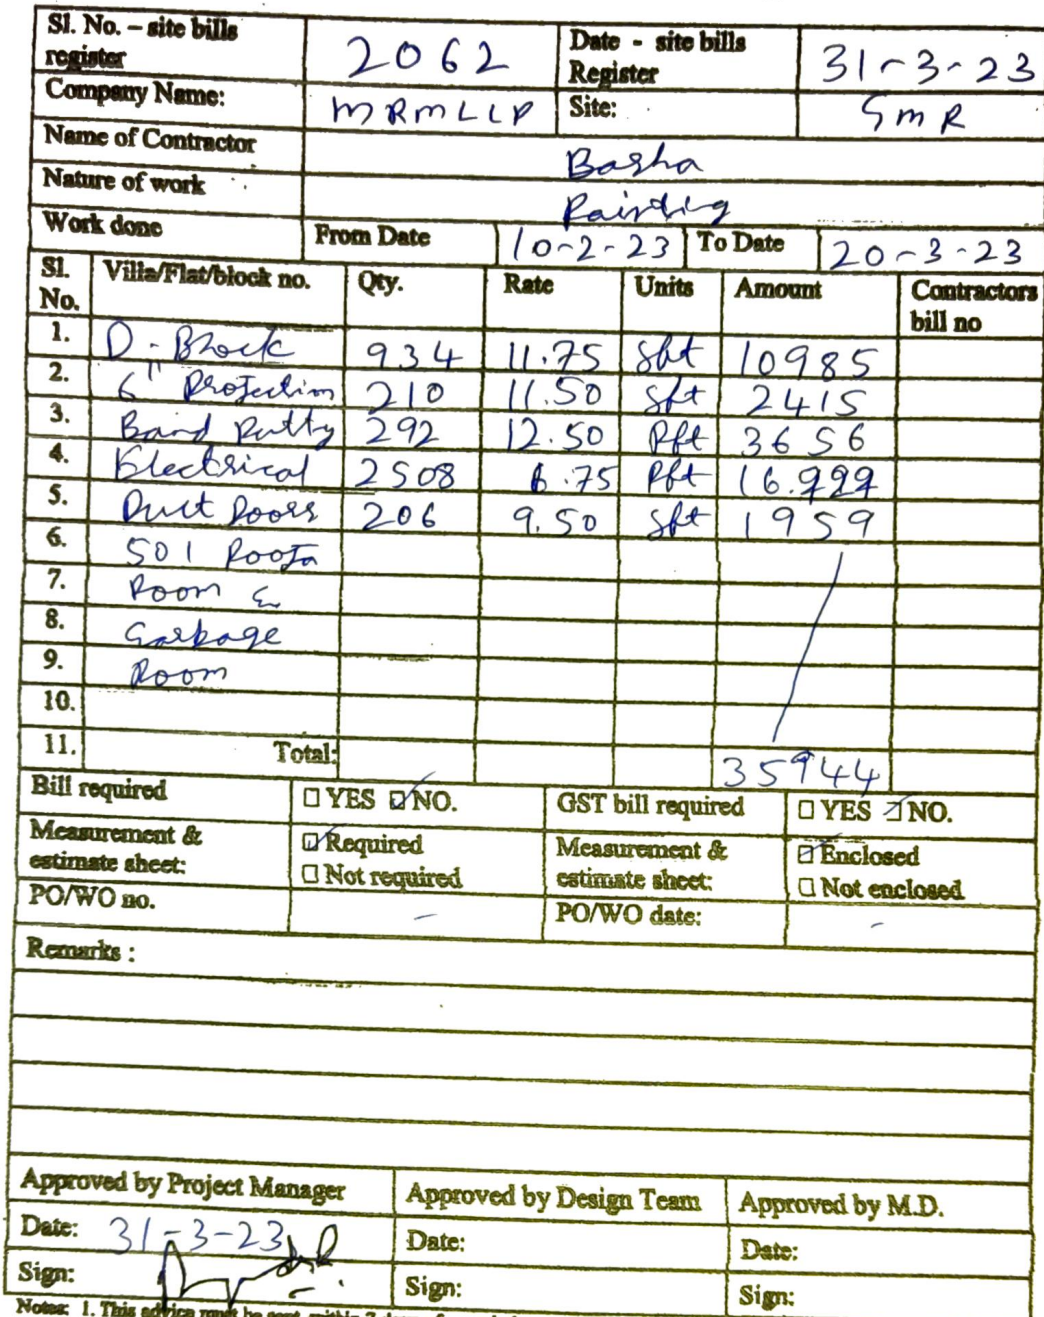 Sl. No. – site bills register 2062 Date - site bills Register 31-3-23
Company Name: MRMLLP Site: GMR
Name of Contractor Basha
Nature of work Painting
Work done From Date 10-2-23 To Date 20-3-23
Sl. No. Villa/Flat/block no. Qty. Rate Units Amount Contractors bill no
1. D-Block 934 11.75 Sft 10985
2. 6" Projection 210 11.50 Sft 2415
3. Band Putty 292 12.50 Rft 3656
4. Electrical 2508 6.75 Rft 16.929
5. Duct Doors 206 9.50 Sft 1959
6. 501 Pooja
7. Room &
8. Garbage
9. Room
10.
11. Total: 35944
Bill required □ YES ☑ NO. GST bill required □ YES ☑ NO.
Measurement & estimate sheet: ☑ Required □ Not required Measurement & estimate sheet: ☑ Enclosed □ Not enclosed
PO/WO no. - PO/WO date: -
Remarks :
Approved by Project Manager Approved by Design Team Approved by M.D.
Date: 31-3-23 Date: Date:
Sign: Sign: Sign:
Notes: 1. This advice must be sent within